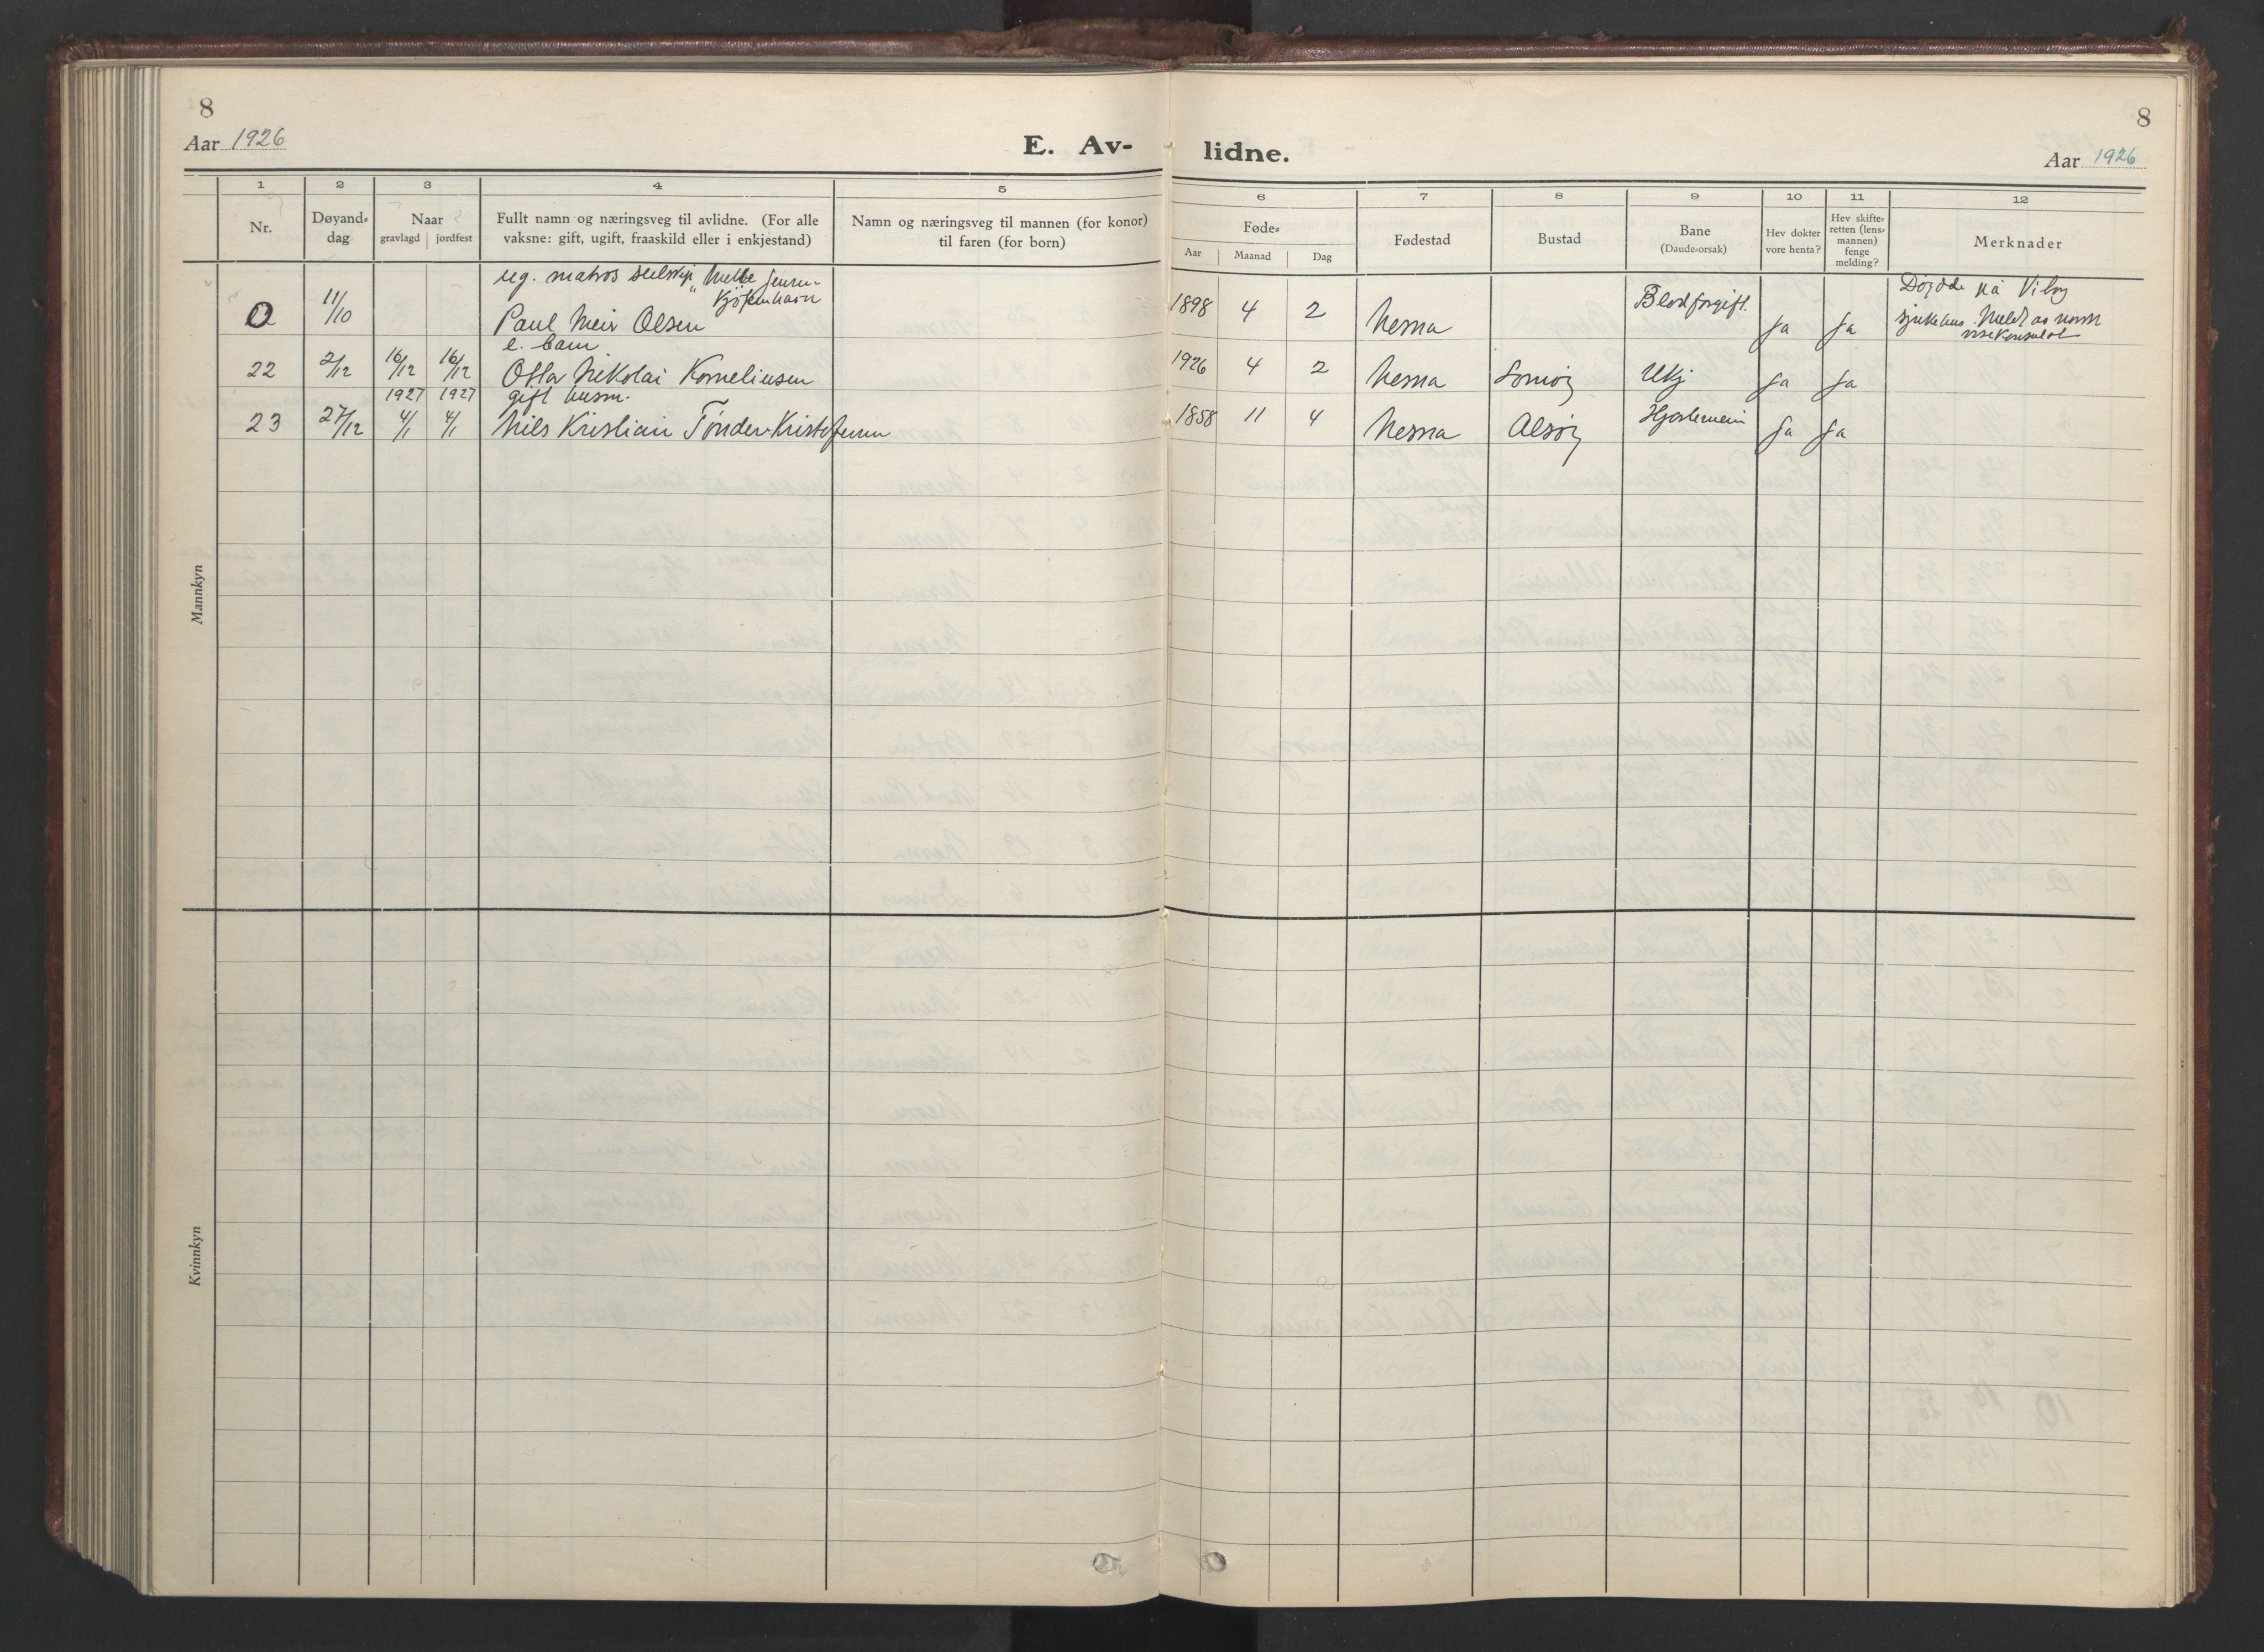 8
8
Aar 1926
E. Av-
lidne.
Aar 1926
1 2 3 4 5 6 7 8 9 10 11 12
Nr.
Døyand-
dag
Naar
gravlagd jordfest
Fullt namn og næringsveg til avlidne. (For alle
vaksne: gift, ugift, fraaskild eller i enkjestand)
Namn og næringsveg til mannen (for konor)
til faren (for born)
Føde-
Aar Maanad Dag
Fødestad
Bustad
Bane
(Daude-orsak)
Hev dokter
vore henta?
Hev skifte-
retten (lens-
mannen)
fenge
melding?
Merknader
ug. matros
Kjøbenhavn
Døydde på Viborg
0 11/10 Paul Meir Olsen 1898 4 2 Nesna Blodforgift. Ja Ja sjukehus. Meldt av norsk
visekonsulat
e. barn
22 2/12 16/12 16/12 Otta Nikolai Korneliusen 1926 4 2 Nesna Lomøy Ukj Ja Ja
1927 1927 gift husm.
23 27/12 4/1 4/1 Nils Kristian Tønder Kristofersen 1858 11 4 Nesna Alsøy Hjartemein Ja Ja
Mannkyn
Kvinnkyn